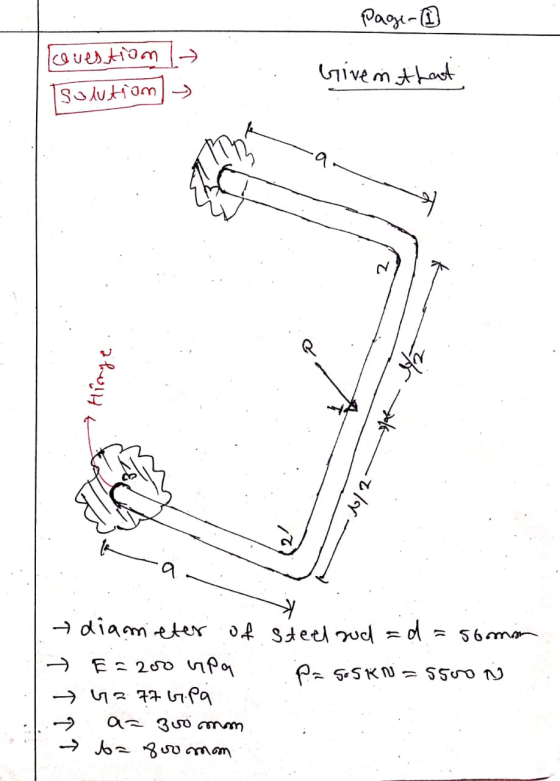 Page-①
Question →
Solution →
Given that
a
2
P
b/2
1
b/2
Hinge
3
2'
a
→ diameter of steel rod = d = 56mm
→ E = 200 GPa
P = 5.5KN = 5500 N
→ G = 77 GPa
→ a = 300 mm
→ b = 800mm